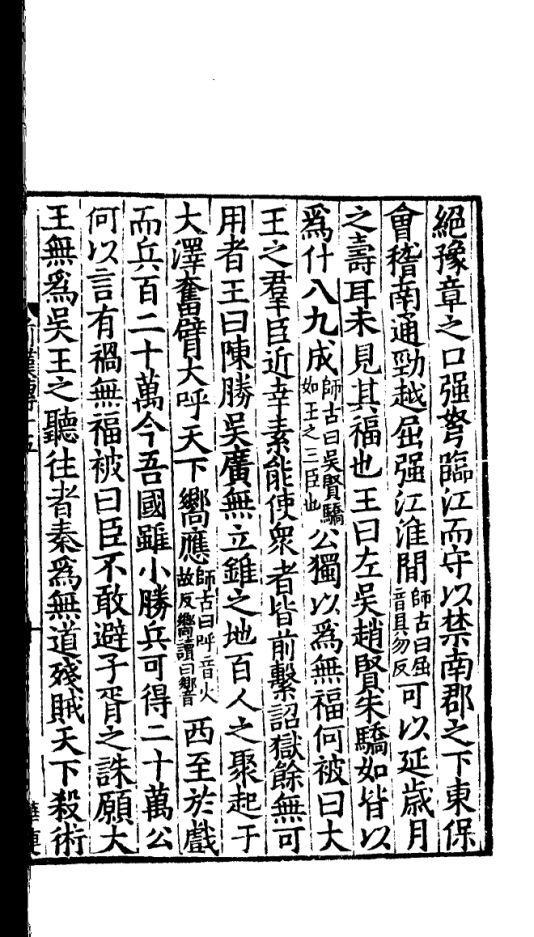 絕豫章之口强弩臨江而守以禁南郡之下東保
會稽南通勁越屈强江淮間師古曰屈音具勿反可以延歲月
之壽耳未見其福也王曰左吳趙賢朱驕如皆以
爲什八九成師古曰吳賢驕如王之三臣也公獨以爲無福何被曰大
王之羣臣近幸素能使衆者皆前繫詔獄餘無可
用者王曰陳勝吳廣無立錐之地百人之聚起于
大澤奮臂大呼天下嚮應師古曰呼音火故反嚮讀曰響音西至於戲
而兵百二十萬今吾國雖小勝兵可得二十萬公
何以言有禍無福被曰臣不敢避子胥之誅願大
王無爲吳王之聽往者秦爲無道殘賊天下殺術
前漢傳十五